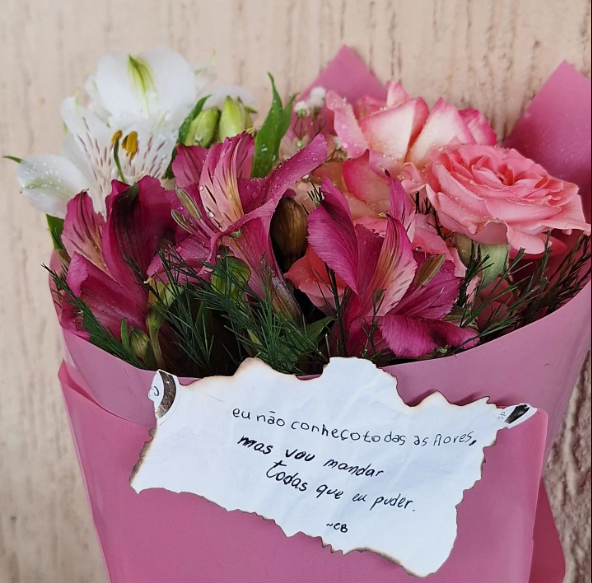 eu não conheço todas as flores,
mas vou mandar
todas que eu puder.
~CB